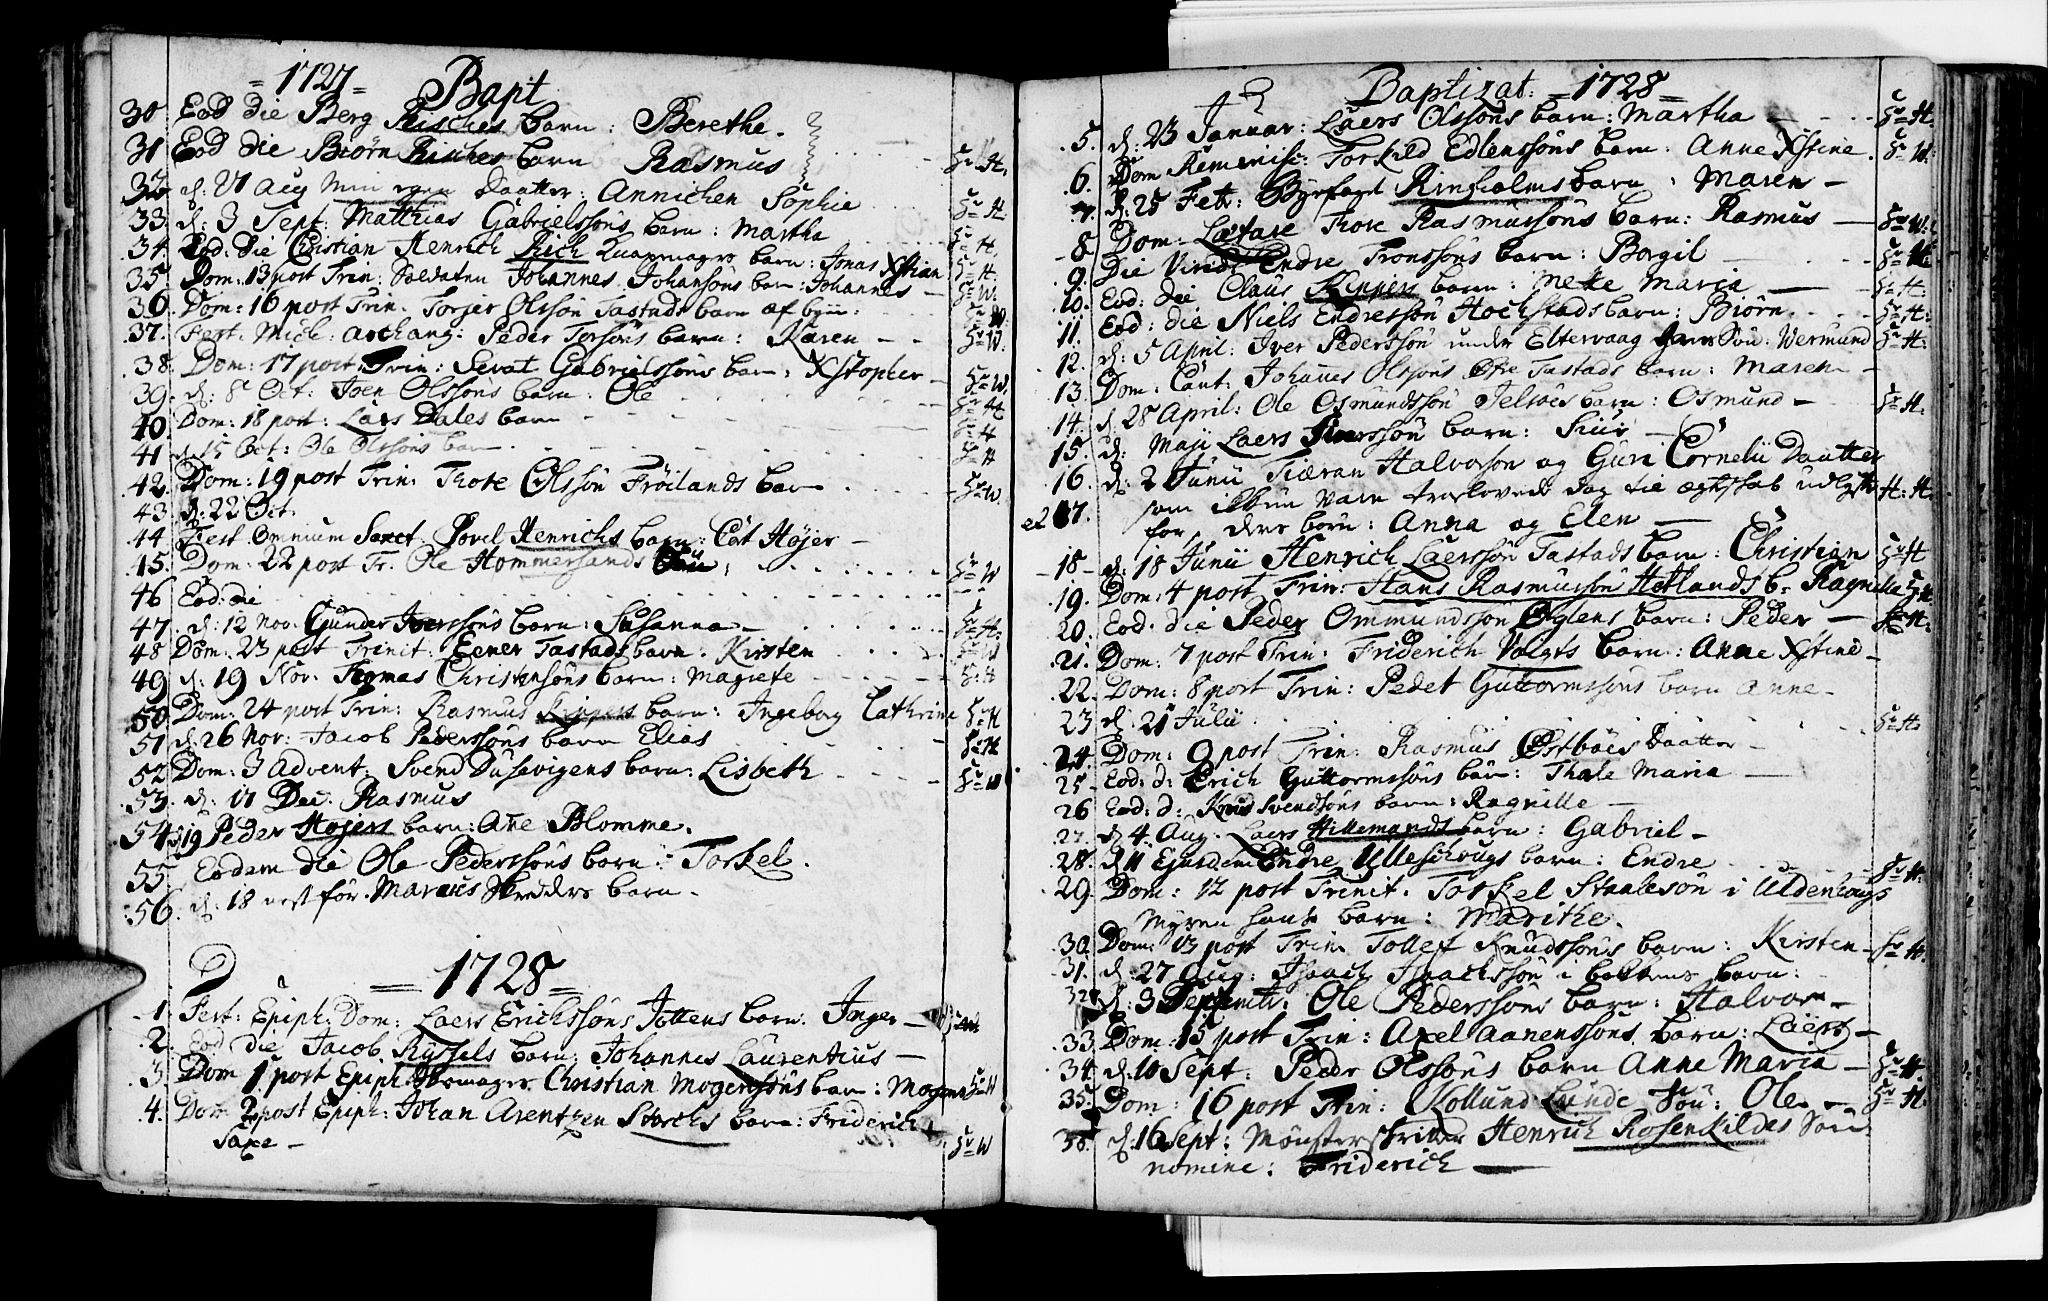 =1727= Bapt
30 Eod die Berg Risches barn: Berethe.
31 Eod die Biørn Risches barn Rasmus Hr H.
32 d: 27 Aug min egen Daatter: Annichen Sophie
33. d: 3 Sept: Matthias Gabrielssøns barn: Martha Hr H
34. Eod: die Christian Henrich Rich barn: Jonas Xstian Hr H.
35. Dom: 13 post Trin: Soldaten Johannes Johansøns barn: Johannes Hr H.
36. Dom: 16 post Trin. Torjer Olssøn Tastads barn af byen: Hr W.
37. Fest. Mich: archang: Peder Torsøns barn: Karen Hr W.
38. Dom: 17 post Trin: Serat Gabrielssøns barn: Xstopher Hr W.
39. d: 8 Oct: Iven Olssøns barn: Ole Hr W
40 Dom: 18 post: Lars Dales barn Hr H
41 d 15 Oct: Ole Olssøns barn Hr H
42. Dom: 19 post Trin: Thore Olssøn Frøilands barn Hr W.
43. d: 22 Oct:
44 Fest Omnium Sanct: Povel Henrichs barn: Cat Højer
45. Dom: 22 post Tr. Ole Hommersands Søn: Hr W
46 Eod: die
47. d: 12 Nov: Gunder Iverssøns barn: Susanna Hr H.
48 Dom: 23 post Trinit: Eener Tastads barn. Kirsten Hr W
49 d: 19 Nov. Thomas Christensøns barn: Magrete Hr H
50 Dom: 24 post Trin: Rasmus Kippers barn: Ingeborg Cathrina Hr H
51 d 26 Nov: Jacob Pederssøns barn Elias Hr H
52 Dom: 3 Advent: Svend Dusevigens barn: Lisbeth Hr W
53. d: 17 Dec. Rasmus
54 d 19 Peder Højers barn: Ane Blomme.
55. Eodem die Ole Pederssøns barn: Torkel.
56. d: 18 nest før. Marcus Skredders barn.
=1728=
1. Fest: Epiph: Dom: Laers Erichssøns Jottens barn. Inger
2. Eod die Jacob Kyssels barn: Johannes Laurentius
3. Dom 1 post Epiph. Christian Mogenssøns barn: Mogens Hr W
4. Dom 2 post Epiph: Johan Arentzen Storchs barn: Friderich
Saxe Hr W
Baptizat: =1728=
5. d: 23 Januar: Laers Olssøns barn: Martha Hr H.
6. Dom Reminisc: Torkild Edlenssøns barn: Anne Xstine. Hr W.
7. d: 25 Feb: Byefogd Ringholms barn: Maren
8 Dom. Lætare Thore Rasmussøns barn: Rasmus Hr W.
9. Die Virid: Endre Tronssøns barn: Borgil
10. Eod: die Claus Kippers barn: Mette Maria Hr H.
11. Eod: die Niels Endressøn Hochstads barn: Biørn Hr H.
12. d: 5 April: Iver Pederssøn under Eltervaag hans Søn: Vermund Hr H.
13. Dom: Cant: Johannes Olssøns Øfre Tastads barn: Maren
14. d. 28 April: Ole Osmundssøn Jelsøes barn: Osmund Hr H.
15. d: Maji Laers barn: Siur
16. d: 2 Junii Halvorsøn og Guri Cornelii Daatter
et 17. som Dag til ægteskab
for, deres børn: Anna og Elen
18 d: 18 Junii Henrich Laerssøn Tastads barn: Christian Hr H
19. Dom: 4 post Trin: Hans Rasmussøn Hetlands b: Ragnilla Hr H
20. Eod. die Peder Ommundssøn barn: Peder
21. Dom: 7 post Trin: Friderich Voigts barn: Anne Xstine
22. Dom: 8 post Trin: Peder Guttormssøns barn Anne
23 d: 21 Julii Hr H
24. Dom: 9 post Trin: Rasmus Østbøes Daatter
25 Eod: d: Erich Guttormssøns barn: Thale Maria
26 Eod: d: Knud Svendsøns barn: Ragnille
27. d 4. Aug. Laers Hillemands barn: Gabriel
28. d 11 Ejusdem Endre Ullenhougs barn: Endre Hr H.
29. Dom: 12 post Trinit. Torkel Staalesøn i Ullenhougs
Myren hans barn: Marithe.
30. Dom: 13 post Trin Tollef Knudssøns barn: Kirsten Hr H.
31. d: 27 Aug: Isaach Isaachssøn i barn:
32. d: 3 Septemb: Ole Pederssøns barn: Halvor
33. Dom 15 post Trin: Axel Aanenssøns barn: Laers
34. d: 10 Sept: Peder Olssøns barn Anne Maria Hr H.
35. Dom: 16 post Trin: Kollund Lunde Søn: Ole Hr H.
36. d: 16 Sept: Mønster Henrich Rosenkildes Søn
nomine: Friderich